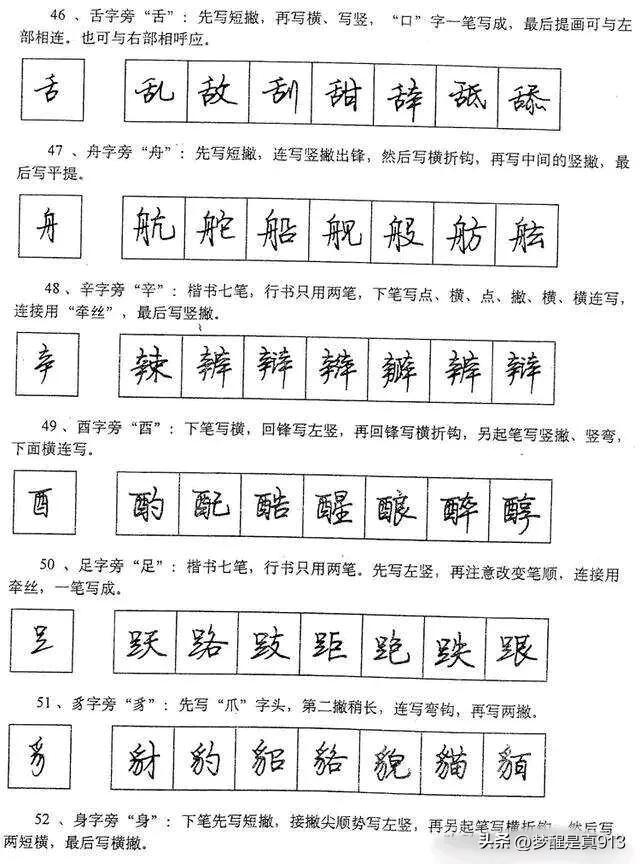 46、舌字旁“舌”：先写短撇，再写横、写竖，“口”字一笔写成，最后提画可与左
部相连。也可与右部相呼应。
舌 乱 敌 刮 甜 辞 舐 舔
47、舟字旁“舟”：先写短撇，连写竖撇出锋，然后写横折钩，再写中间的竖撇，最
后写平提。
舟 航 舵 船 舰 般 舫 舷
48、辛字旁“辛”：楷书七笔，行书只用两笔，下笔写点、横、点、撇、横、横连写，
连接用“牵丝”，最后写竖撇。
辛 辣 辨 辩 辫 瓣 辨 辩
49、酉字旁“酉”：下笔写横，回锋写左竖，再回锋写横折钩，另起笔写竖撇、竖弯，
下面横连写。
酉 酌 配 酷 醒 酿 醉 醇
50、足字旁“足”：楷书七笔，行书只用两笔。先写左竖，再注意改变笔顺，连接用
牵丝，一笔写成。
𧾷 跃 路 跂 距 跑 跌 跟
51、豸字旁“豸”：先写“爪”字头，第二撇稍长，连写弯钩，再写两撇。
豸 豺 豹 貂 貉 貌 貓 貊
52、身字旁“身”：下笔先写短撇，接撇尖顺势写左竖，再另起笔写横折钩，然后写
两短横，最后写横撇。
头条 @梦醒是真913